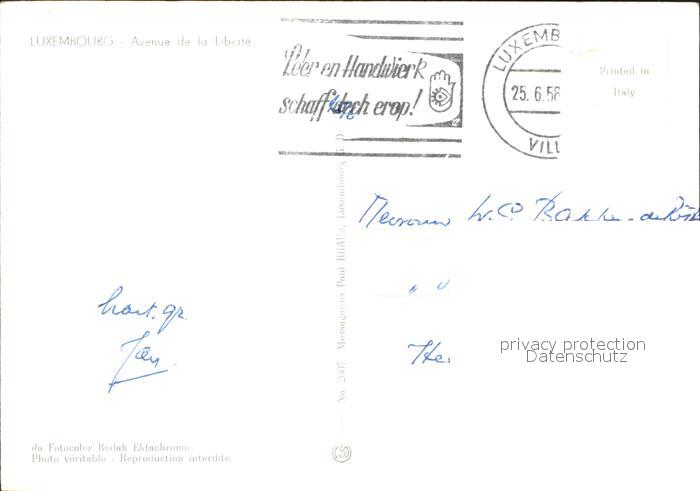 LUXEMBOURG - Avenue de la Liberté
Léer en Handwierk
schaff dech erop!
LUXEMB
25.6.58
VILL
Printed in
Italy
Mevrouw W. C. Bakker - de
" "
hart. gr.
Jan
privacy protection
Datenschutz
No. 2007 Messageries Paul BRAUS, Luxembourg
da Fotocolor Kodak Ektachrome
Photo véritable - Reproduction interdite